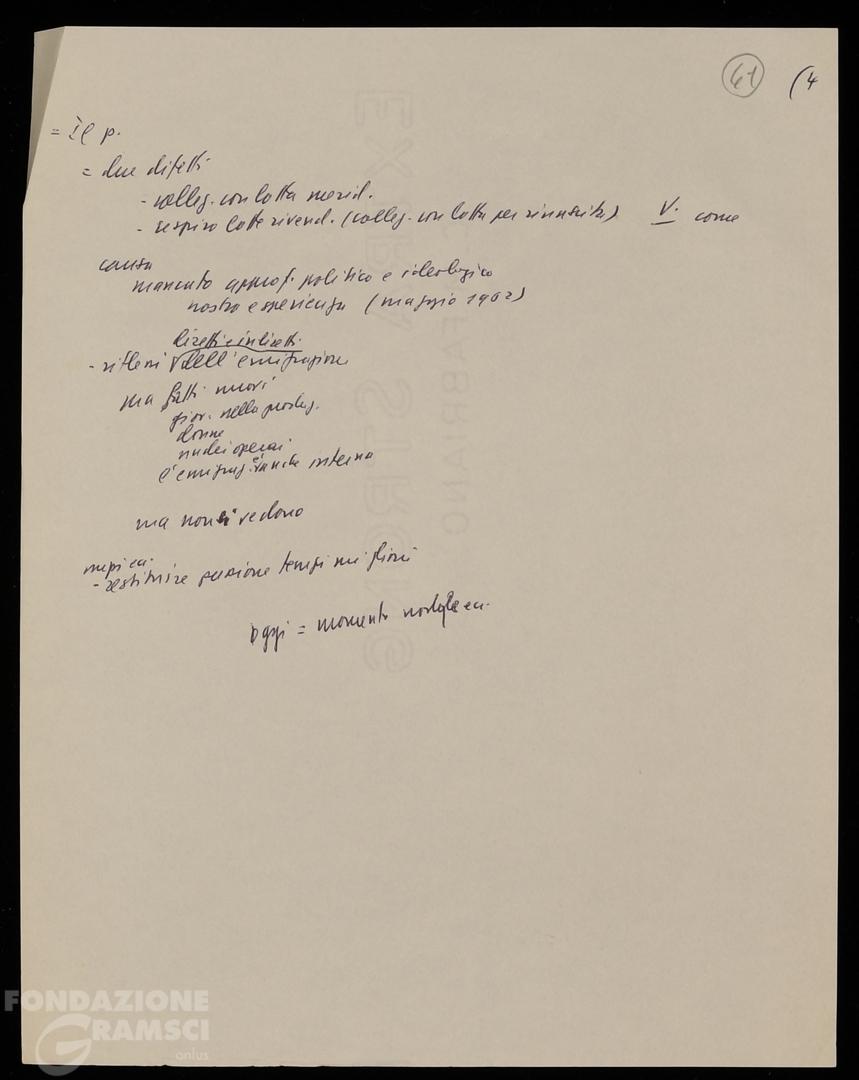 61 (4
= Il p.
= due difetti
- colleg. con lotta merid.
- respiro lotte rivend. (colleg. con lotta per rinascita) V. come
causa
mancato approf. politico e ideologico
nostra esperienza (maggio 1962)
diretti e indiretti
- riflessi dell'emigrazione
ma fatti nuovi
giov. nella produz.
donne
nuclei operai
l'emigraz. è anche interna
ma non si vedono
- restituire passione tempi migliori
oggi = momento
FABRIANO
EXTRA STRONG
FONDAZIONE
GRAMSCI
onlus